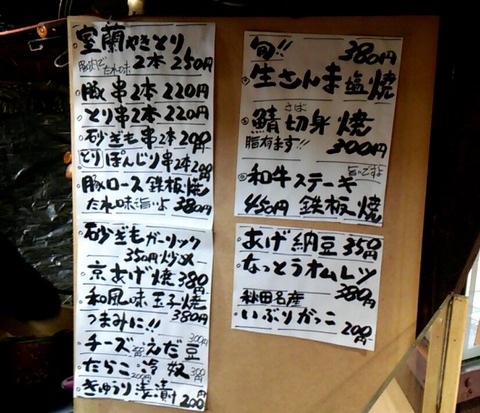 室蘭やきとり
豚肉で
たれ味 2本 250円
豚串2本 220円
とり串2本 220円
砂ぎも串2本 200円
とりぼんじり串2本 200円
豚ロース鉄板焼
たれ味旨いよ 380円
砂ぎもガーリック
350円 炒め
京あげ焼 380円
和風味玉子焼
つまみに!! 380円
チーズ えだ豆 300円
たらこ 200円 冷奴 350円
きゅうり浅漬 200円
旬!! 380円
生さんま塩焼
さば
鯖切身焼
脂有ます!! 300円
和牛ステーキ 旨いですよ
450円 鉄板焼
あげ納豆 350円
なっとうオムレツ
380円
秋田名産
いぶりがっこ
200円